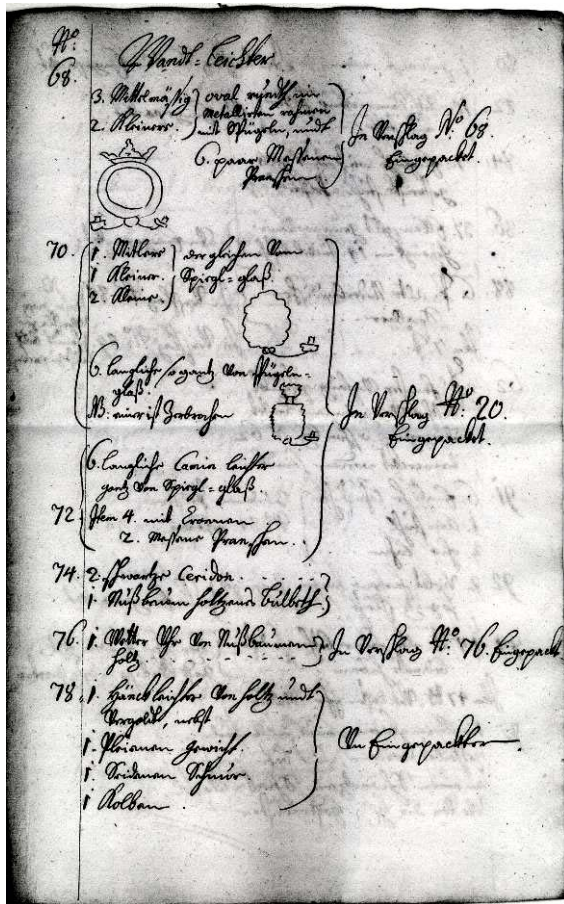 No:
68.
Wandt-Leichter
3. Mittelmäsig oval rundt, mit
Metallirten rahmen
2. Kleinere. mit Spügeln, undt
6. paar Messenen
In Verschlag No. 68.
Eingepacket.
70. 1. Mitlere der gleichen Von
1 Kleiner. Spiegl=glaß.
2. Kleine
6. langliche so gantz Von Spügeln-
glaß.
NB: einer ist Zerbrochen
In Verschlag No: 20.
Eingepacket.
6. langliche Camin leichter
gantz von Spiegl=glaß.
72. Item 4. mit
2. Messene
74. 2. schwartze Ceridon.
1. Nußbaum holtzenes
76. 1. Wetter Uhr Von Nußbaumenen
holtz
In Verschlag No: 76. Eingepackt
78. 1. Hänckleichter Von holtz undt
Vergoldt, nebst
1. Pleienen gewicht.
1. Seidenen Schnur.
1 Kolben.
Un Eingepackter